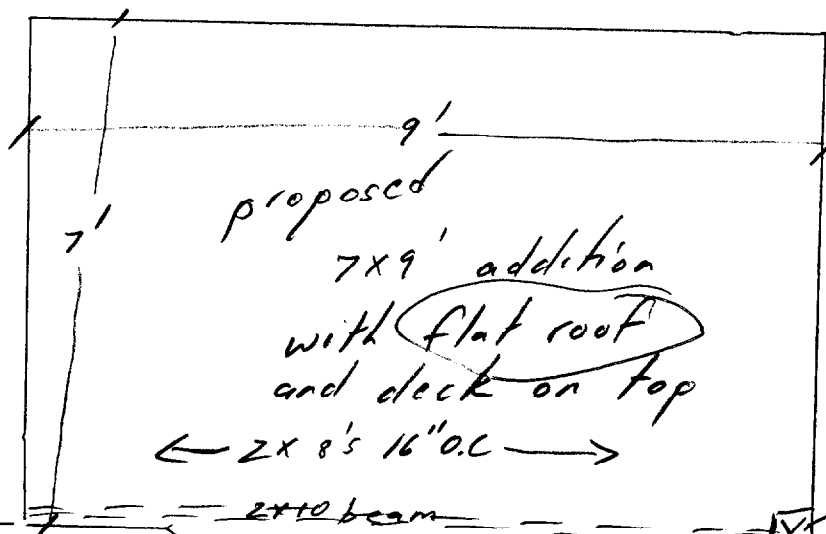 9'
proposed
7'
7x9' addition
with flat roof
and deck on top
2x8's 16" O.C
2x10 beam